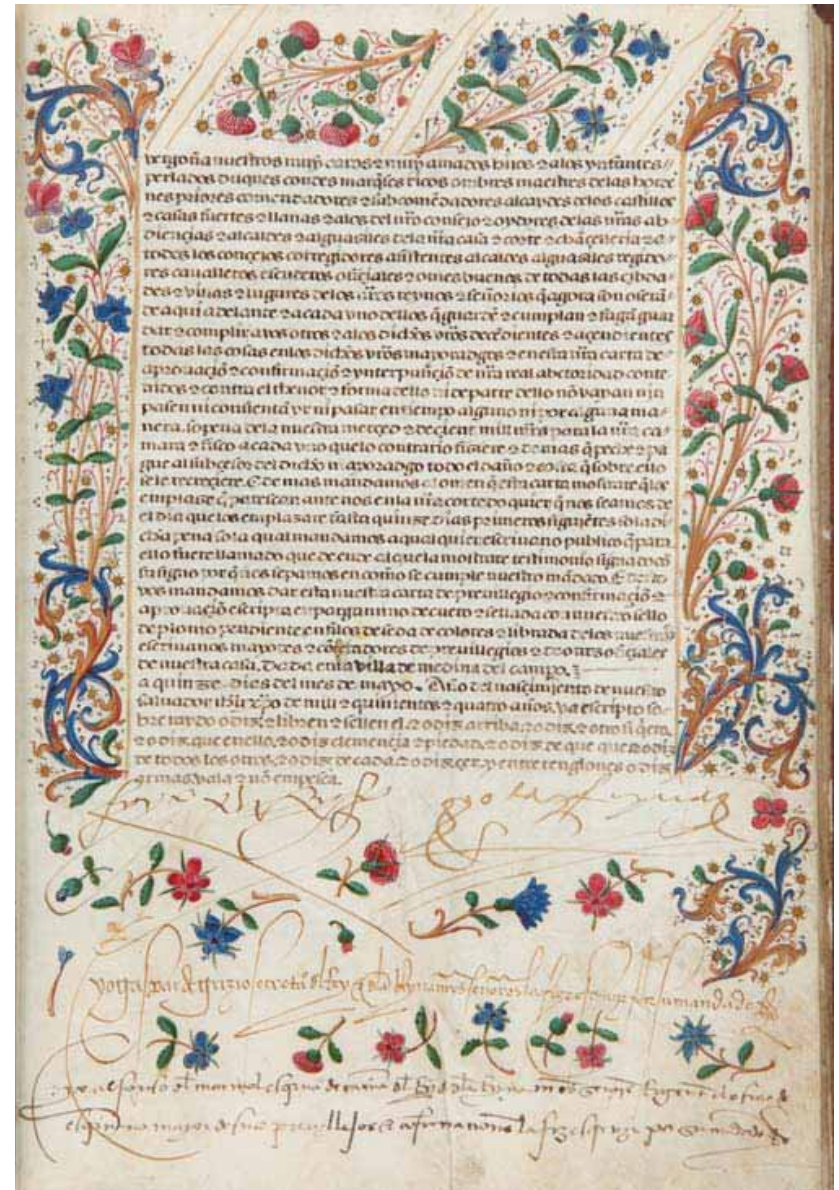 vergoña nuestros muy caros & muy amados hijos & a los ynfantes
perlados duques condes marq̃ses ricos ombres maestres de las horde
nes priores comendadores & subcomẽdadores alcaydes de los castillos
& casas fuertes & llanas & a los del nr̃o consejo & oydores de las nr̃as ab
diençias & alcaldes & alguasiles de la nr̃a casa & corte & chãçelleria & a
todos los conçejos corregidores asistentes alcaldes alguasiles regido
res caualleros escuderos ofiçiales & omes buenos de todas las çibda
des & villas & lugares de los nr̃os reynos & señorios q̃ agora son o serã
de aqui adelante & a cada vno dellos q̃ guardẽ & cumplan & fagã guar
dar & complir a vos otros & a los dichos vr̃os deçẽdientes & açendientes
todas las cosas en los dichos vr̃os mayoradgos & en esta nr̃a carta de
aprouaçiõ & confirmaçiõ & ynterpusiçiõ de nr̃a real abtoridad conte
nidos & contra el thenor & forma dello ni de parte dello nõ vayan nin
pasen ni consientã yr ni pasar en tiempo alguno ni por alguna ma
nera. so pena de la nuestra merçed & de çient mill mr̃s para la nr̃a ca
mara & fisco a cada vno que lo contrario fisiere & de mas q̃ peche & pa
gue al subçesor del dicho mayoradgo todo el daño & q̃ sobre ello
se le recreçiere. E de mas mandamos al omen q̃ esta carta mostrare q̃ los
emplase q̃ parescan ante nos en la nr̃a corte do quier q̃ nos seamos de
el dia que los emplazare fasta quinse dias primeros siguiẽtes so la di
cha pena so la qual mandamos a qual quier escriuano publico q̃ para
ello fuere llamado que de ende al que la mostrare testimonio signado cõ
su signo por q̃ nos sepamos en como se cumple nuestro mãdado. E
vos mandamos dar esta nuestra carta de preuillegio & confirmaçiõ &
aprouaçiõ escripta en pargamino de cuero & sellada con nuestro sello
de plomo pendiente en filos de seda de colores & librada de los nuestros
escriuanos mayores & cõçertadores de preuillegios & de otros ofiçiales
de nuestra casa. Dada en la villa de medina del campo.
a quinse dias del mes de mayo. Año del nasçimiento de nuestro
saluador ihũ xp̃o de mill & quinientos & quatro años. va escripto so
bre raydo o dis & libren & sellen el & o dis arriba. & o dis & otrosi q̃
& o dis. que en ello. & o dis clemençia & piedad. & o dis de que que & o dis
re todos los otros. & o dis de cada. & o dis çer. y entre renglones o dis
armas vala & nõ empesca.
yo el Rey yo la Reyna
yo gaspar de grizio secretario del Rey & de la Reyna nr̃os señores la fize screuir por su mandado
yo alfonso del marmol escriuano de camara del Rey & de la Reyna nr̃os señores
escriuano mayor de sus preuillejos & confirmaciones la fize escreuir por su mandado